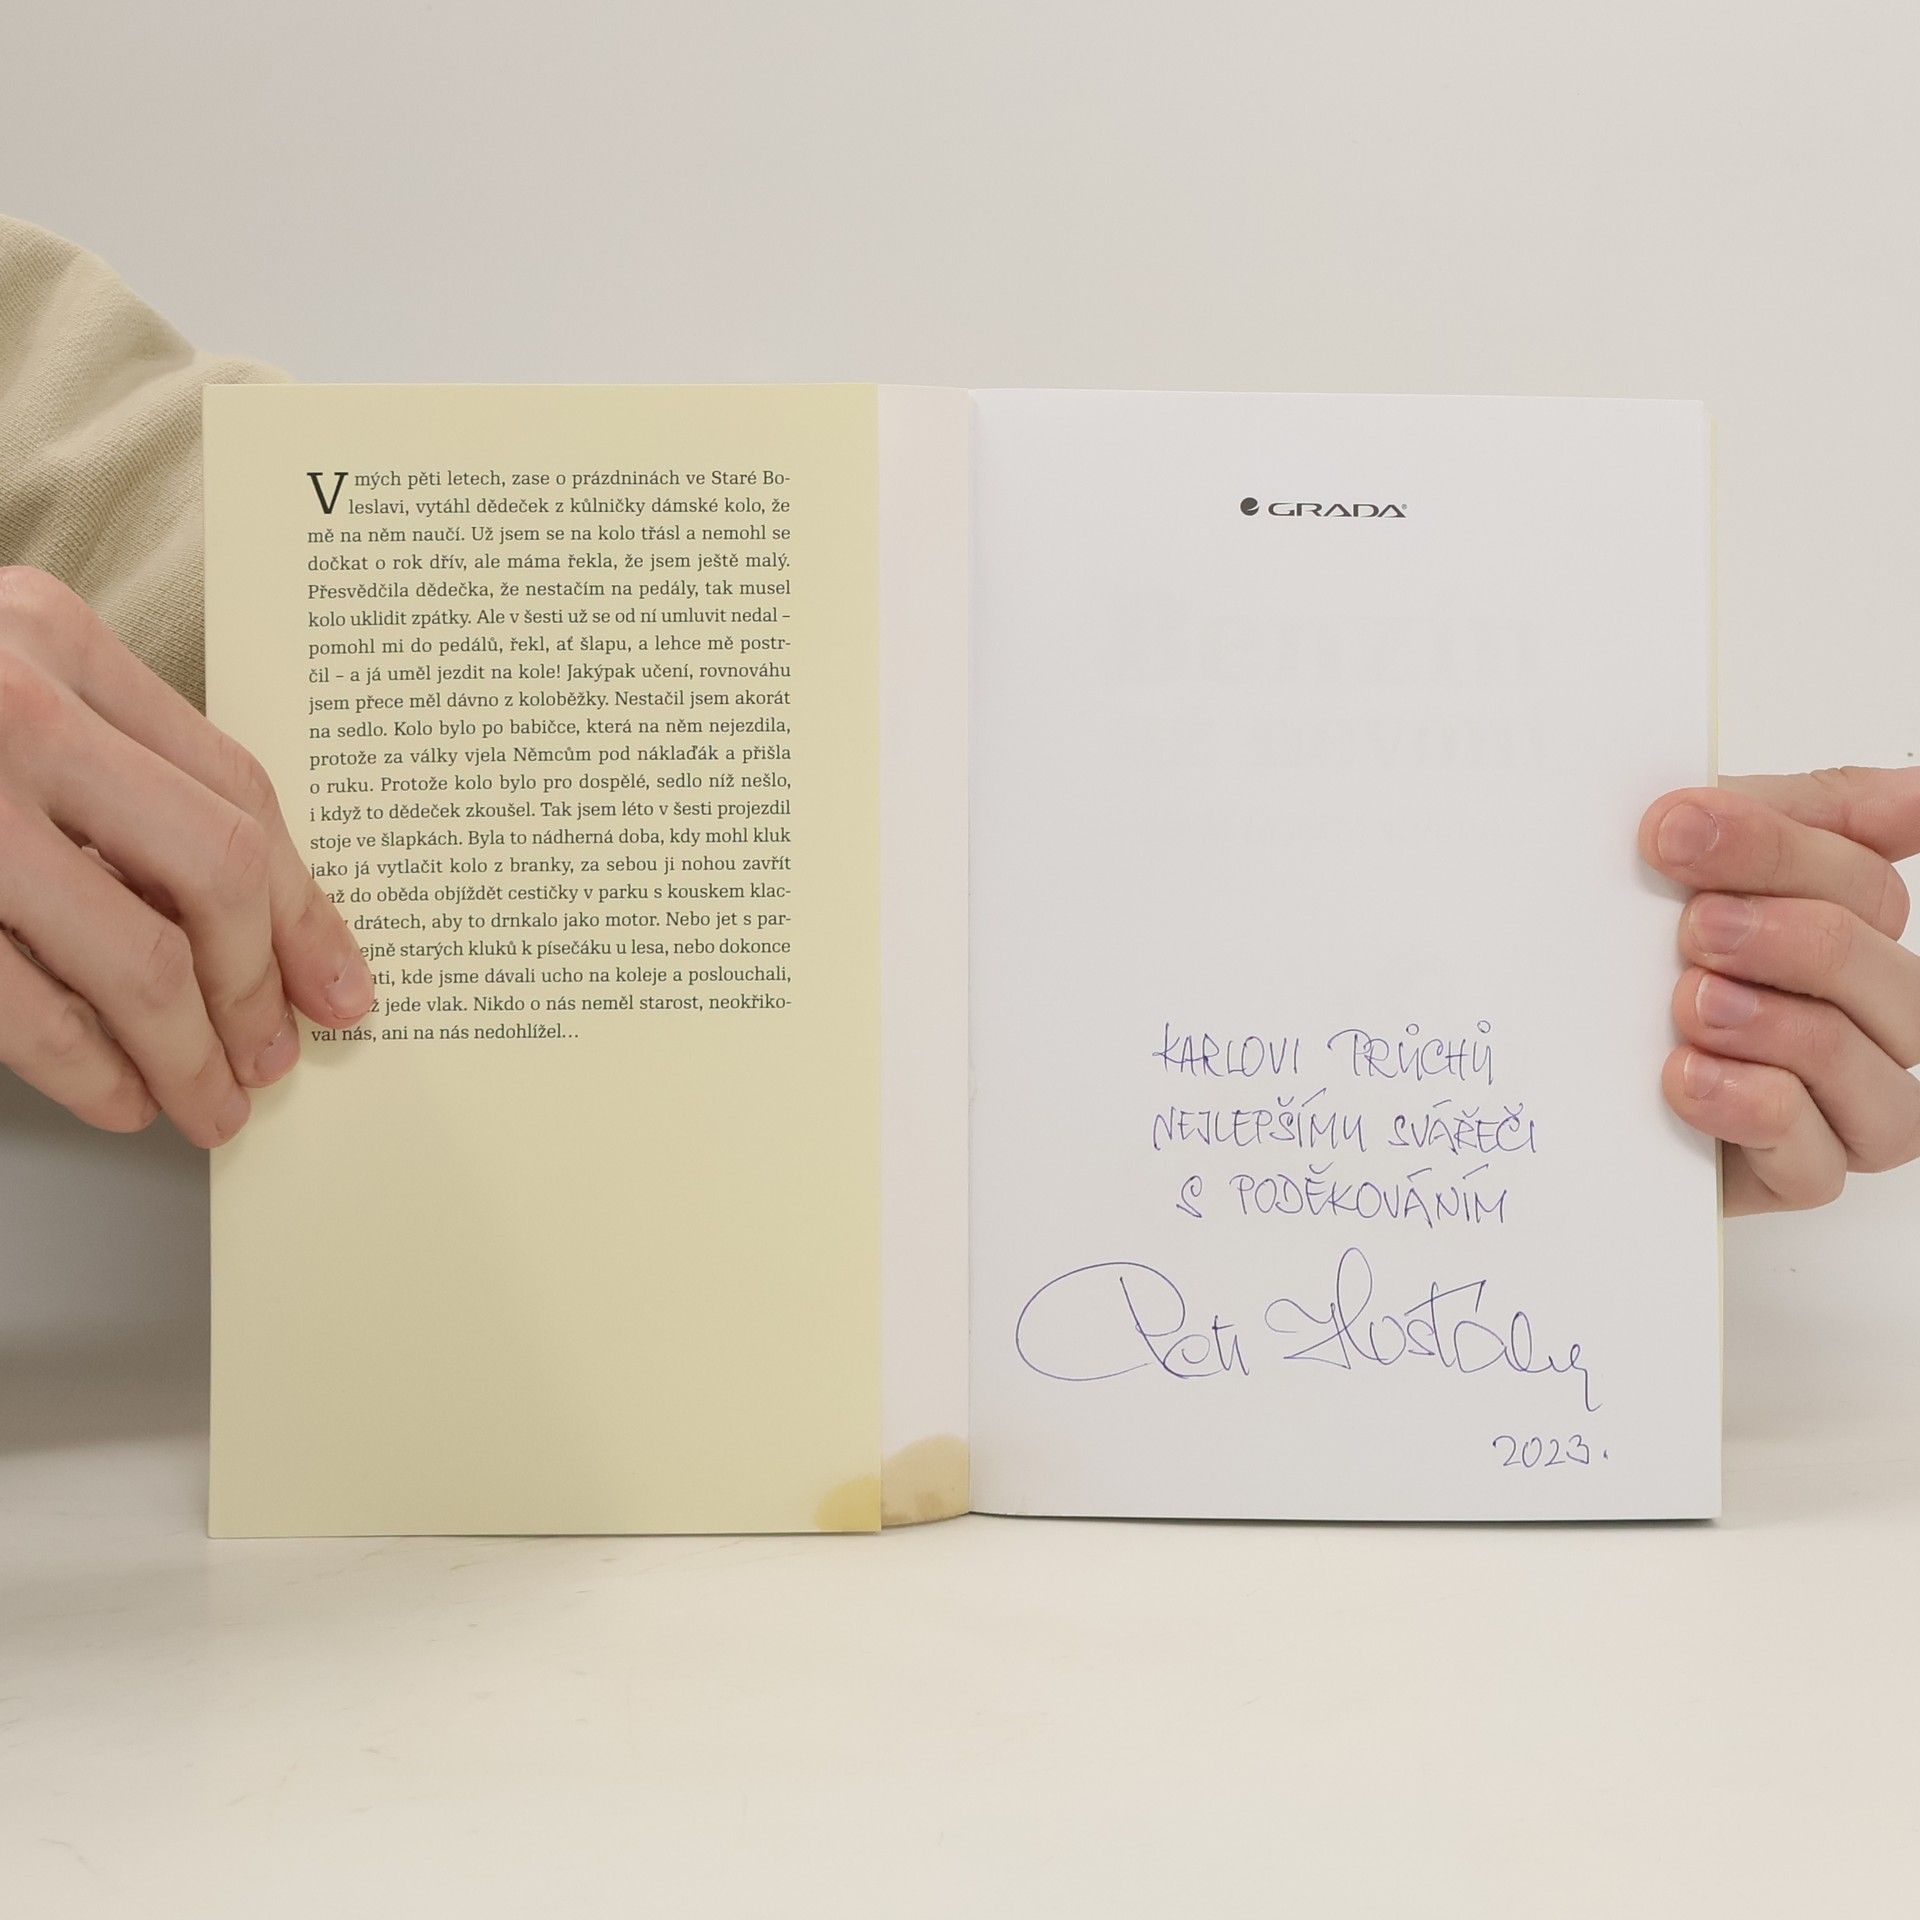 V mých pěti letech, zase o prázdninách ve Staré Bo-
leslavi, vytáhl dědeček z kůlničky dámské kolo, že
mě na něm naučí. Už jsem se na kolo třásl a nemohl se
dočkat o rok dřív, ale máma řekla, že jsem ještě malý.
Přesvědčila dědečka, že nestačím na pedály, tak musel
kolo uklidit zpátky. Ale v šesti už se od ní umluvit nedal –
pomohl mi do pedálů, řekl, ať šlapu, a lehce mě postr-
čil – a já uměl jezdit na kole! Jakýpak učení, rovnováhu
jsem přece měl dávno z koloběžky. Nestačil jsem akorát
na sedlo. Kolo bylo po babičce, která na něm nejezdila,
protože za války vjela Němcům pod náklaďák a přišla
o ruku. Protože kolo bylo pro dospělé, sedlo níž nešlo,
i když to dědeček zkoušel. Tak jsem léto v šesti projezdil
stoje ve šlapkách. Byla to nádherná doba, kdy mohl kluk
jako já vytlačit kolo z branky, za sebou ji nohou zavřít
až do oběda objíždět cestičky v parku s kouskem klac-
drátech, aby to drnkalo jako motor. Nebo jet s par-
ejně starých kluků k písečáku u lesa, nebo dokonce
ati, kde jsme dávali ucho na koleje a poslouchali,
ž jede vlak. Nikdo o nás neměl starost, neokřiko-
val nás, ani na nás nedohlížel…
GRADA®
KARLOVI PRŮCHŮ
NEJLEPŠÍMU SVÁŘEČI
S PODĚKOVÁNÍM
Petr Hošťálek
2023.